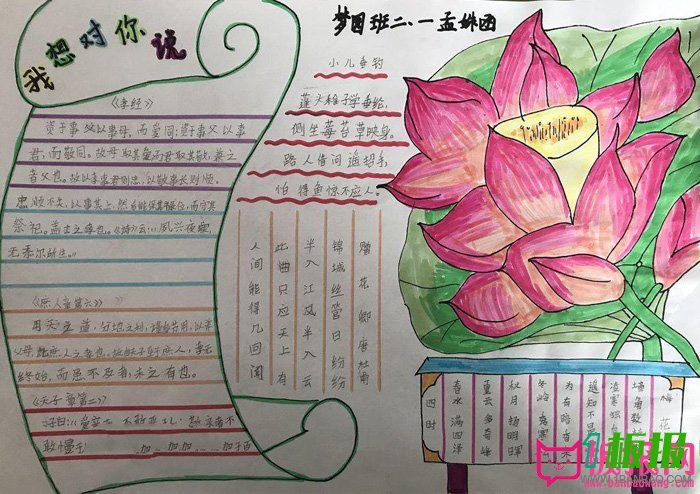 我想对你说
《孝经》
资于事父以事母，而爱同；资于事父以事
君，而敬同。故母取其爱而君取其敬，兼之
者父也。故以孝事君则忠，以敬事长则顺。
忠顺不失，以事其上，然后能保其禄位，而守其
祭祀。盖士之孝也。《诗》云：“夙兴夜寐，
无忝尔所生。”
《庶人章第六》
用天之道，分地之利，谨身节用，以养
父母，此庶人之孝也。故自天子至于庶人，孝无
终始，而患不及者，未之有也。
《天子章第二》
子曰：“爱亲 不敢恶 敬亲者不
敢慢于
梦圆班二、一孟姝园
小儿垂钓
蓬头稚子学垂纶，
侧坐莓苔草映身。
路人借问遥招手，
怕得鱼惊不应人。
赠花卿唐杜甫
锦城丝管日纷纷
半入江风半入云
此曲只应天上有
人间能得几回闻
梅花
墙角数
凌寒独
遥知不是
为有暗香
冬岭秀寒
秋月扬明晖
夏云多奇峰
春水满四泽
四时
板报网
1BANBAO.COM
www.banbaoheng.com